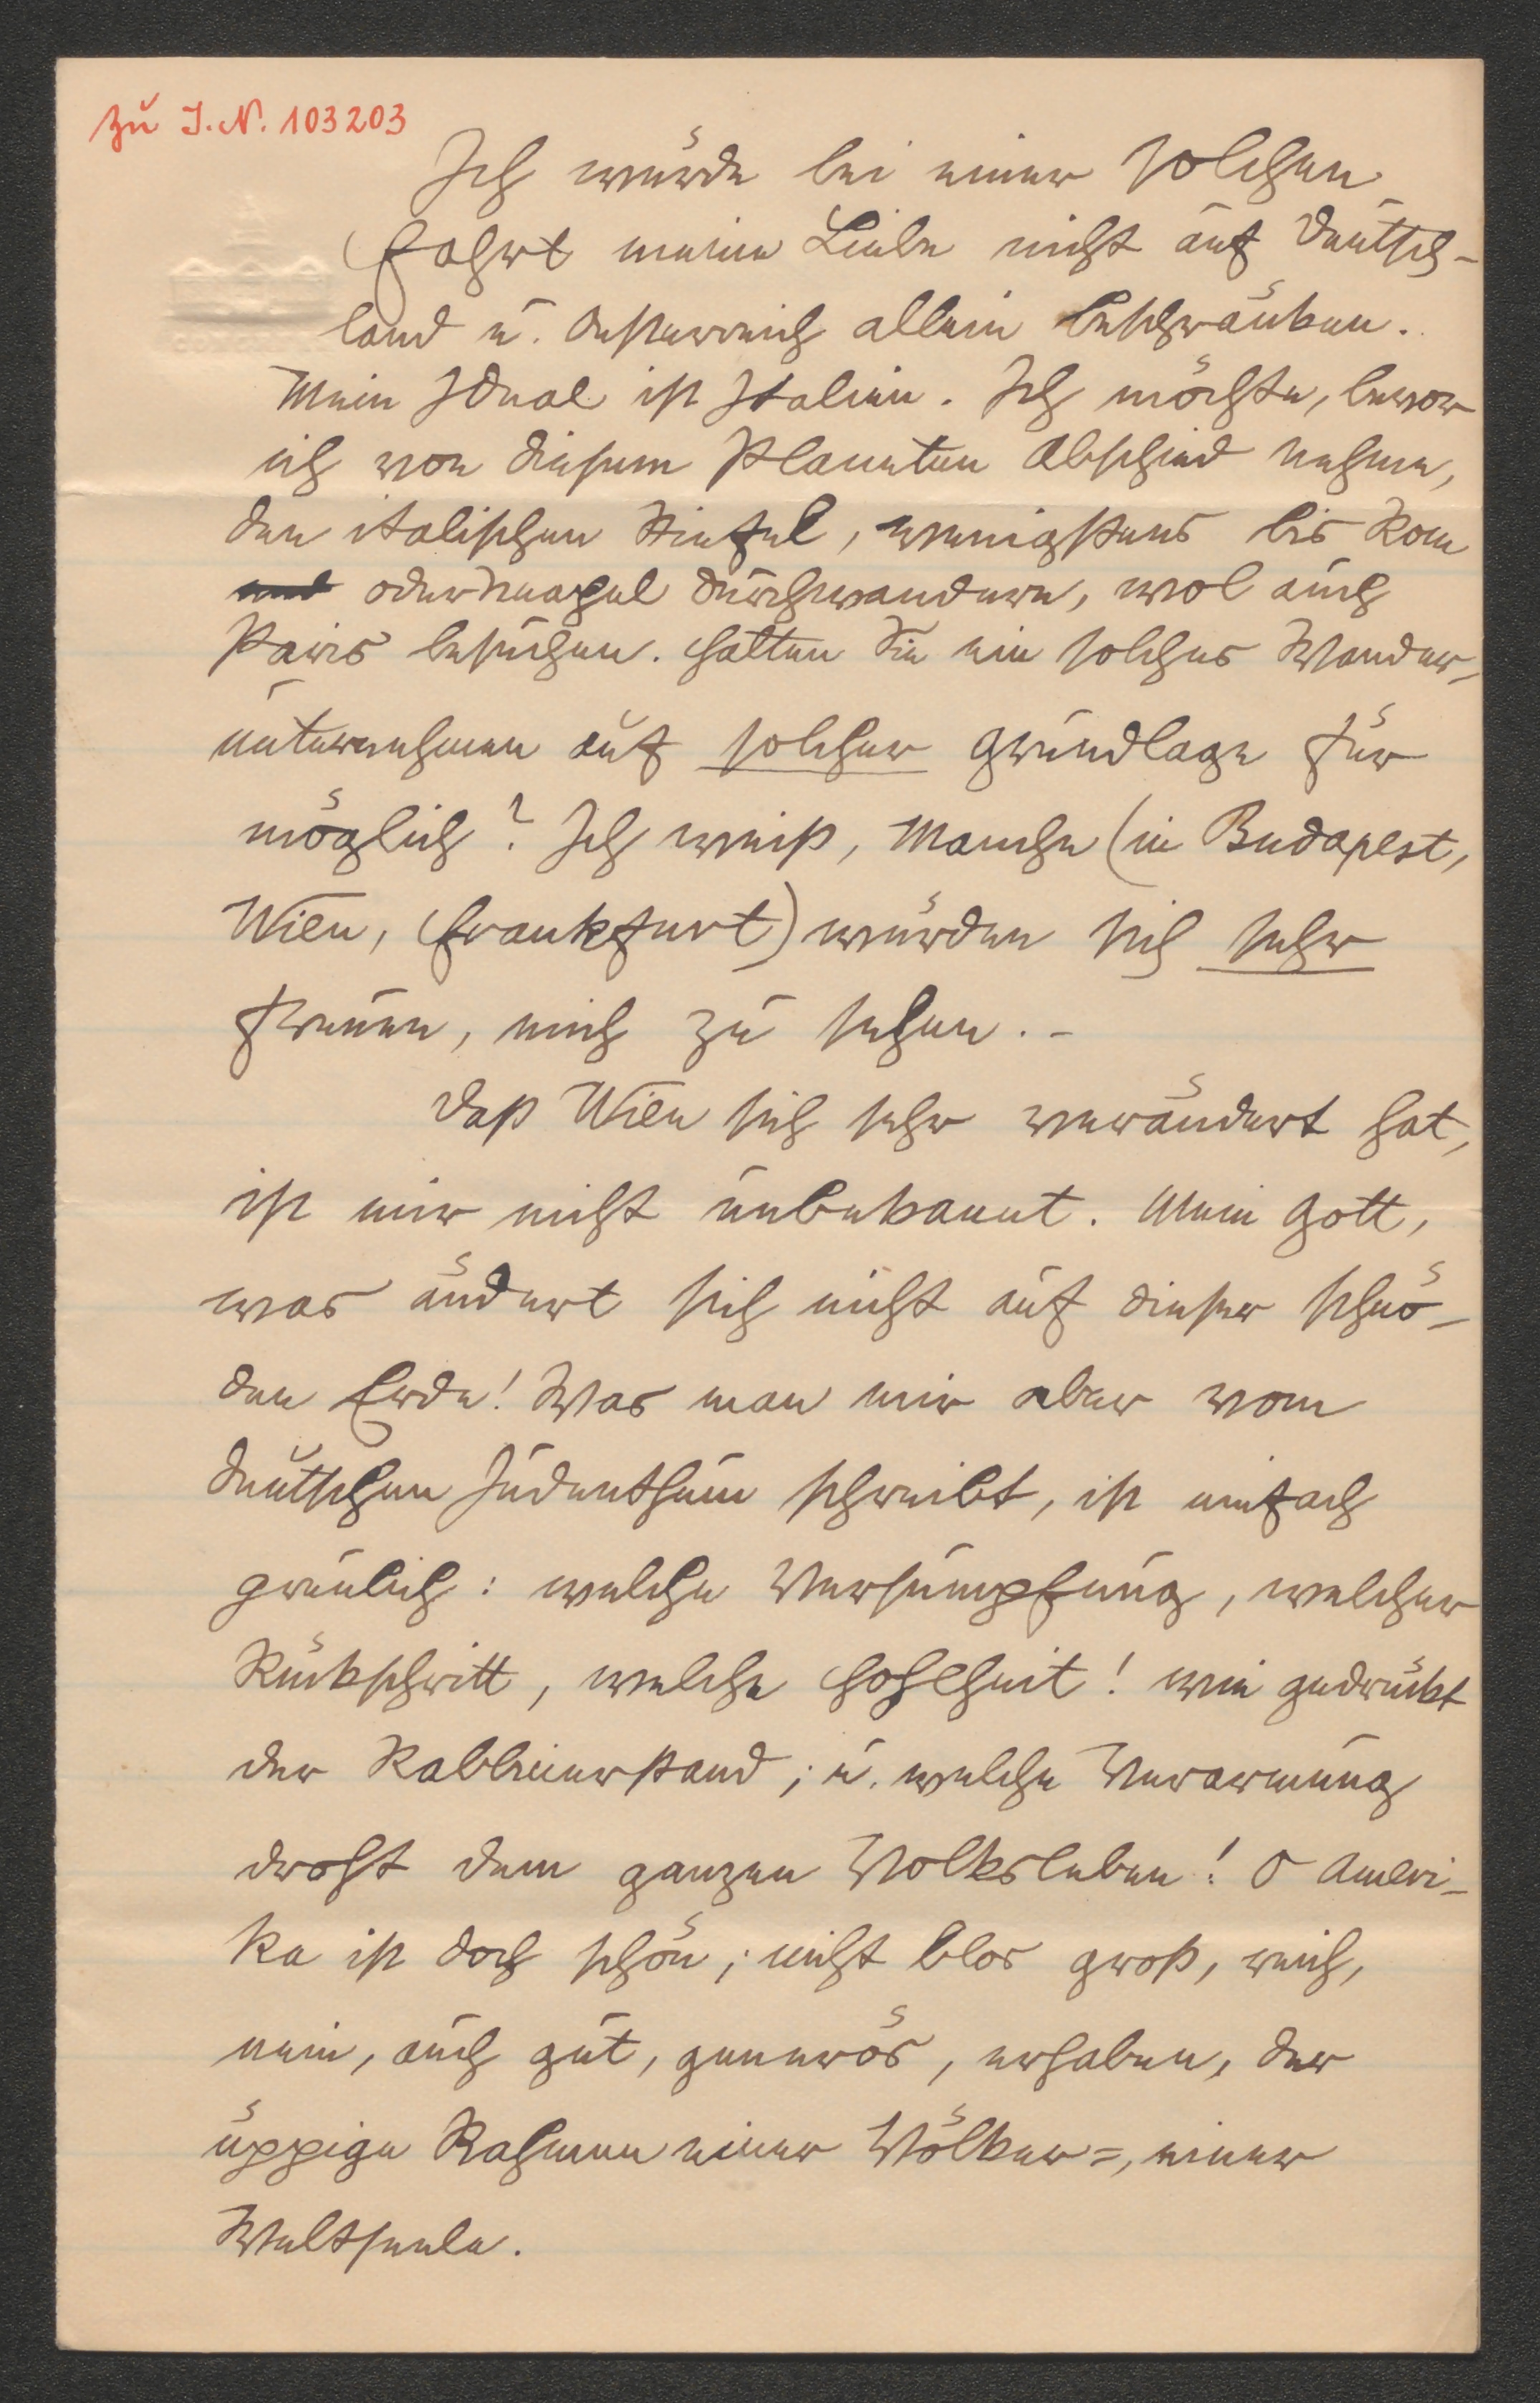 zu I.N. 103203
Ich würde bei einer solchen
Fahrt meine Liebe nicht auf Deutsch-
land u. Oesterreich allein beschränken.
Mein Ideal ist Italien. Ich möchte, bevor
ich von diesem Planeten Abschied nehme,
den italischen Stiefel, wenigstens bis Rom
und oder Neapel durchwandern, wol auch
Paris besuchen. Halten Sie ein solches Wander-
unternehmen auf solcher Grundlage für
möglich? Ich weiß, Manche (in Budapest,
Wien, Frankfurt) würden sich sehr
freuen, mich zu sehen. -
Daß Wien sich sehr verändert hat,
ist mir nicht unbekannt. Mein Gott,
was ändert sich nicht auf dieser schnö-
den Erde! Was man mir aber vom
deutschen Judenthum schreibt, ist einfach
greulich: welche Versumpfung, welcher
Rückschritt, welche Hohlheit! wie gedrückt
der Rabbinerstand; u. welche Verarmung
droht dem ganzen Volksleben! O Ameri-
ka ist doch schön; nicht blos groß, reich,
nein, auch gut, generös, erhaben, der
üppige Rahmen einer Völker=, einer
Weltseele.